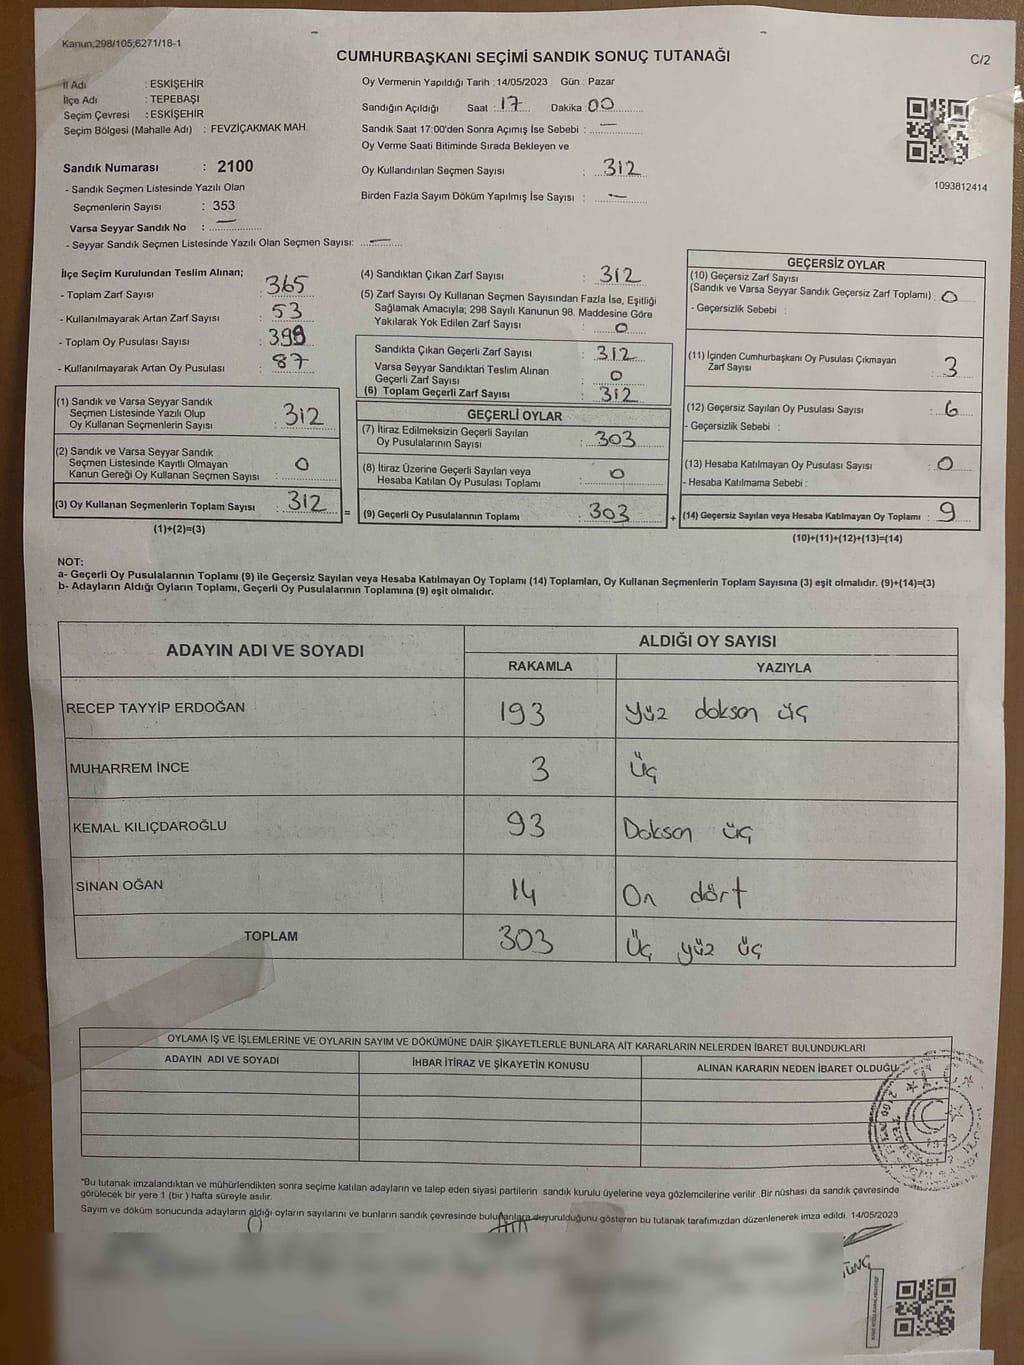 Kanun;298/105;6271/18-1
CUMHURBAŞKANI SEÇİMİ SANDIK SONUÇ TUTANAĞI
C/2
İl Adı : ESKİŞEHİR
İlçe Adı : TEPEBAŞI
Seçim Çevresi : ESKİŞEHİR
Seçim Bölgesi (Mahalle Adı) : FEVZİÇAKMAK MAH.
Sandık Numarası : 2100
- Sandık Seçmen Listesinde Yazılı Olan
Seçmenlerin Sayısı : 353
Varsa Seyyar Sandık No : —
- Seyyar Sandık Seçmen Listesinde Yazılı Olan Seçmen Sayısı: —
Oy Vermenin Yapıldığı Tarih : 14/05/2023 Gün : Pazar
Sandığın Açıldığı Saat : 17 Dakika : 00
Sandık Saat 17:00'den Sonra Açımış İse Sebebi : —
Oy Verme Saati Bitiminde Sırada Bekleyen ve
Oy Kullandırılan Seçmen Sayısı : 312
Birden Fazla Sayım Döküm Yapılmış İse Sayısı : —
1093812414
İlçe Seçim Kurulundan Teslim Alınan;
- Toplam Zarf Sayısı : 365
- Kullanılmayarak Artan Zarf Sayısı : 53
- Toplam Oy Pusulası Sayısı : 398
- Kullanılmayarak Artan Oy Pusulası : 87
(1) Sandık ve Varsa Seyyar Sandık
Seçmen Listesinde Yazılı Olup
Oy Kullanan Seçmenlerin Sayısı : 312
(2) Sandık ve Varsa Seyyar Sandık
Seçmen Listesinde Kayıtlı Olmayan
Kanun Gereği Oy Kullanan Seçmen Sayısı : 0
(3) Oy Kullanan Seçmenlerin Toplam Sayısı : 312
(1)+(2)=(3)
=
(4) Sandıktan Çıkan Zarf Sayısı : 312
(5) Zarf Sayısı Oy Kullanan Seçmen Sayısından Fazla İse, Eşitliği
Sağlamak Amacıyla; 298 Sayılı Kanunun 98. Maddesine Göre
Yakılarak Yok Edilen Zarf Sayısı : 0
Sandıkta Çıkan Geçerli Zarf Sayısı : 312
Varsa Seyyar Sandıktan Teslim Alınan
Geçerli Zarf Sayısı : 0
(6) Toplam Geçerli Zarf Sayısı : 312
GEÇERLİ OYLAR
(7) İtiraz Edilmeksizin Geçerli Sayılan
Oy Pusulalarının Sayısı : 303
(8) İtiraz Üzerine Geçerli Sayılan veya
Hesaba Katılan Oy Pusulası Toplamı : 0
(9) Geçerli Oy Pusulalarının Toplamı : 303
+
GEÇERSİZ OYLAR
(10) Geçersiz Zarf Sayısı
(Sandık ve Varsa Seyyar Sandık Geçersiz Zarf Toplamı) : 0
- Geçersizlik Sebebi :
(11) İçinden Cumhurbaşkanı Oy Pusulası Çıkmayan
Zarf Sayısı : 3
(12) Geçersiz Sayılan Oy Pusulası Sayısı : 6
- Geçersizlik Sebebi :
(13) Hesaba Katılmayan Oy Pusulası Sayısı : 0
- Hesaba Katılmama Sebebi :
(14) Geçersiz Sayılan veya Hesaba Katılmayan Oy Toplamı : 9
(10)+(11)+(12)+(13)=(14)
NOT:
a- Geçerli Oy Pusulalarının Toplamı (9) ile Geçersiz Sayılan veya Hesaba Katılmayan Oy Toplamı (14) Toplamları, Oy Kullanan Seçmenlerin Toplam Sayısına (3) eşit olmalıdır. (9)+(14)=(3)
b- Adayların Aldığı Oyların Toplamı, Geçerli Oy Pusulalarının Toplamına (9) eşit olmalıdır.
ADAYIN ADI VE SOYADI ALDIĞI OY SAYISI
RAKAMLA YAZIYLA
RECEP TAYYİP ERDOĞAN 193 Yüz doksan üç
MUHARREM İNCE 3 Üç
KEMAL KILIÇDAROĞLU 93 Doksan üç
SİNAN OĞAN 14 On dört
TOPLAM 303 Üç yüz üç
OYLAMA İŞ VE İŞLEMLERİNE VE OYLARIN SAYIM VE DÖKÜMÜNE DAİR ŞİKAYETLERLE BUNLARA AİT KARARLARIN NELERDEN İBARET BULUNDUKLARI
ADAYIN ADI VE SOYADI İHBAR İTİRAZ VE ŞİKAYETİN KONUSU ALINAN KARARIN NEDEN İBARET OLDUĞU
*Bu tutanak imzalandıktan ve mühürlendikten sonra seçime katılan adayların ve talep eden siyasi partilerin sandık kurulu üyelerine veya gözlemcilerine verilir .Bir nüshası da sandık çevresinde
görülecek bir yere 1 (bir ) hafta süreyle asılır.
Sayım ve döküm sonucunda adayların aldığı oyların sayılarını ve bunların sandık çevresinde bulunanlara duyurulduğunu gösteren bu tutanak tarafımızdan düzenlenerek imza edildi. 14/05/2023